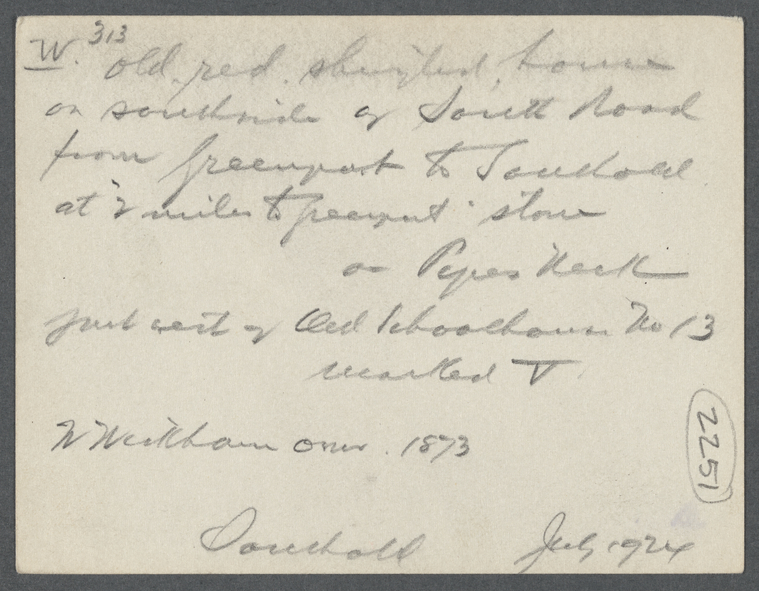 W. 313
old red shingled house
on southside of South Road
from Greenport to Southold
at "2 miles to Greenport" stone
on Pipes Neck
just west of Old Schoolhouse No 13
marked V
W Wickham owner. 1873
Southold July 1924
2251